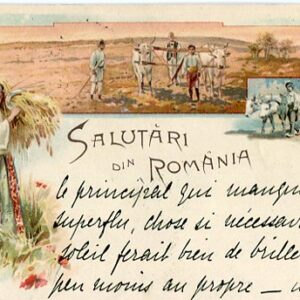 SALUTĂRI
DIN ROMÂNIA
le principal qui manqu
superflu, chose si nécessai
soleil ferait bien de brille
peu moins au propre —